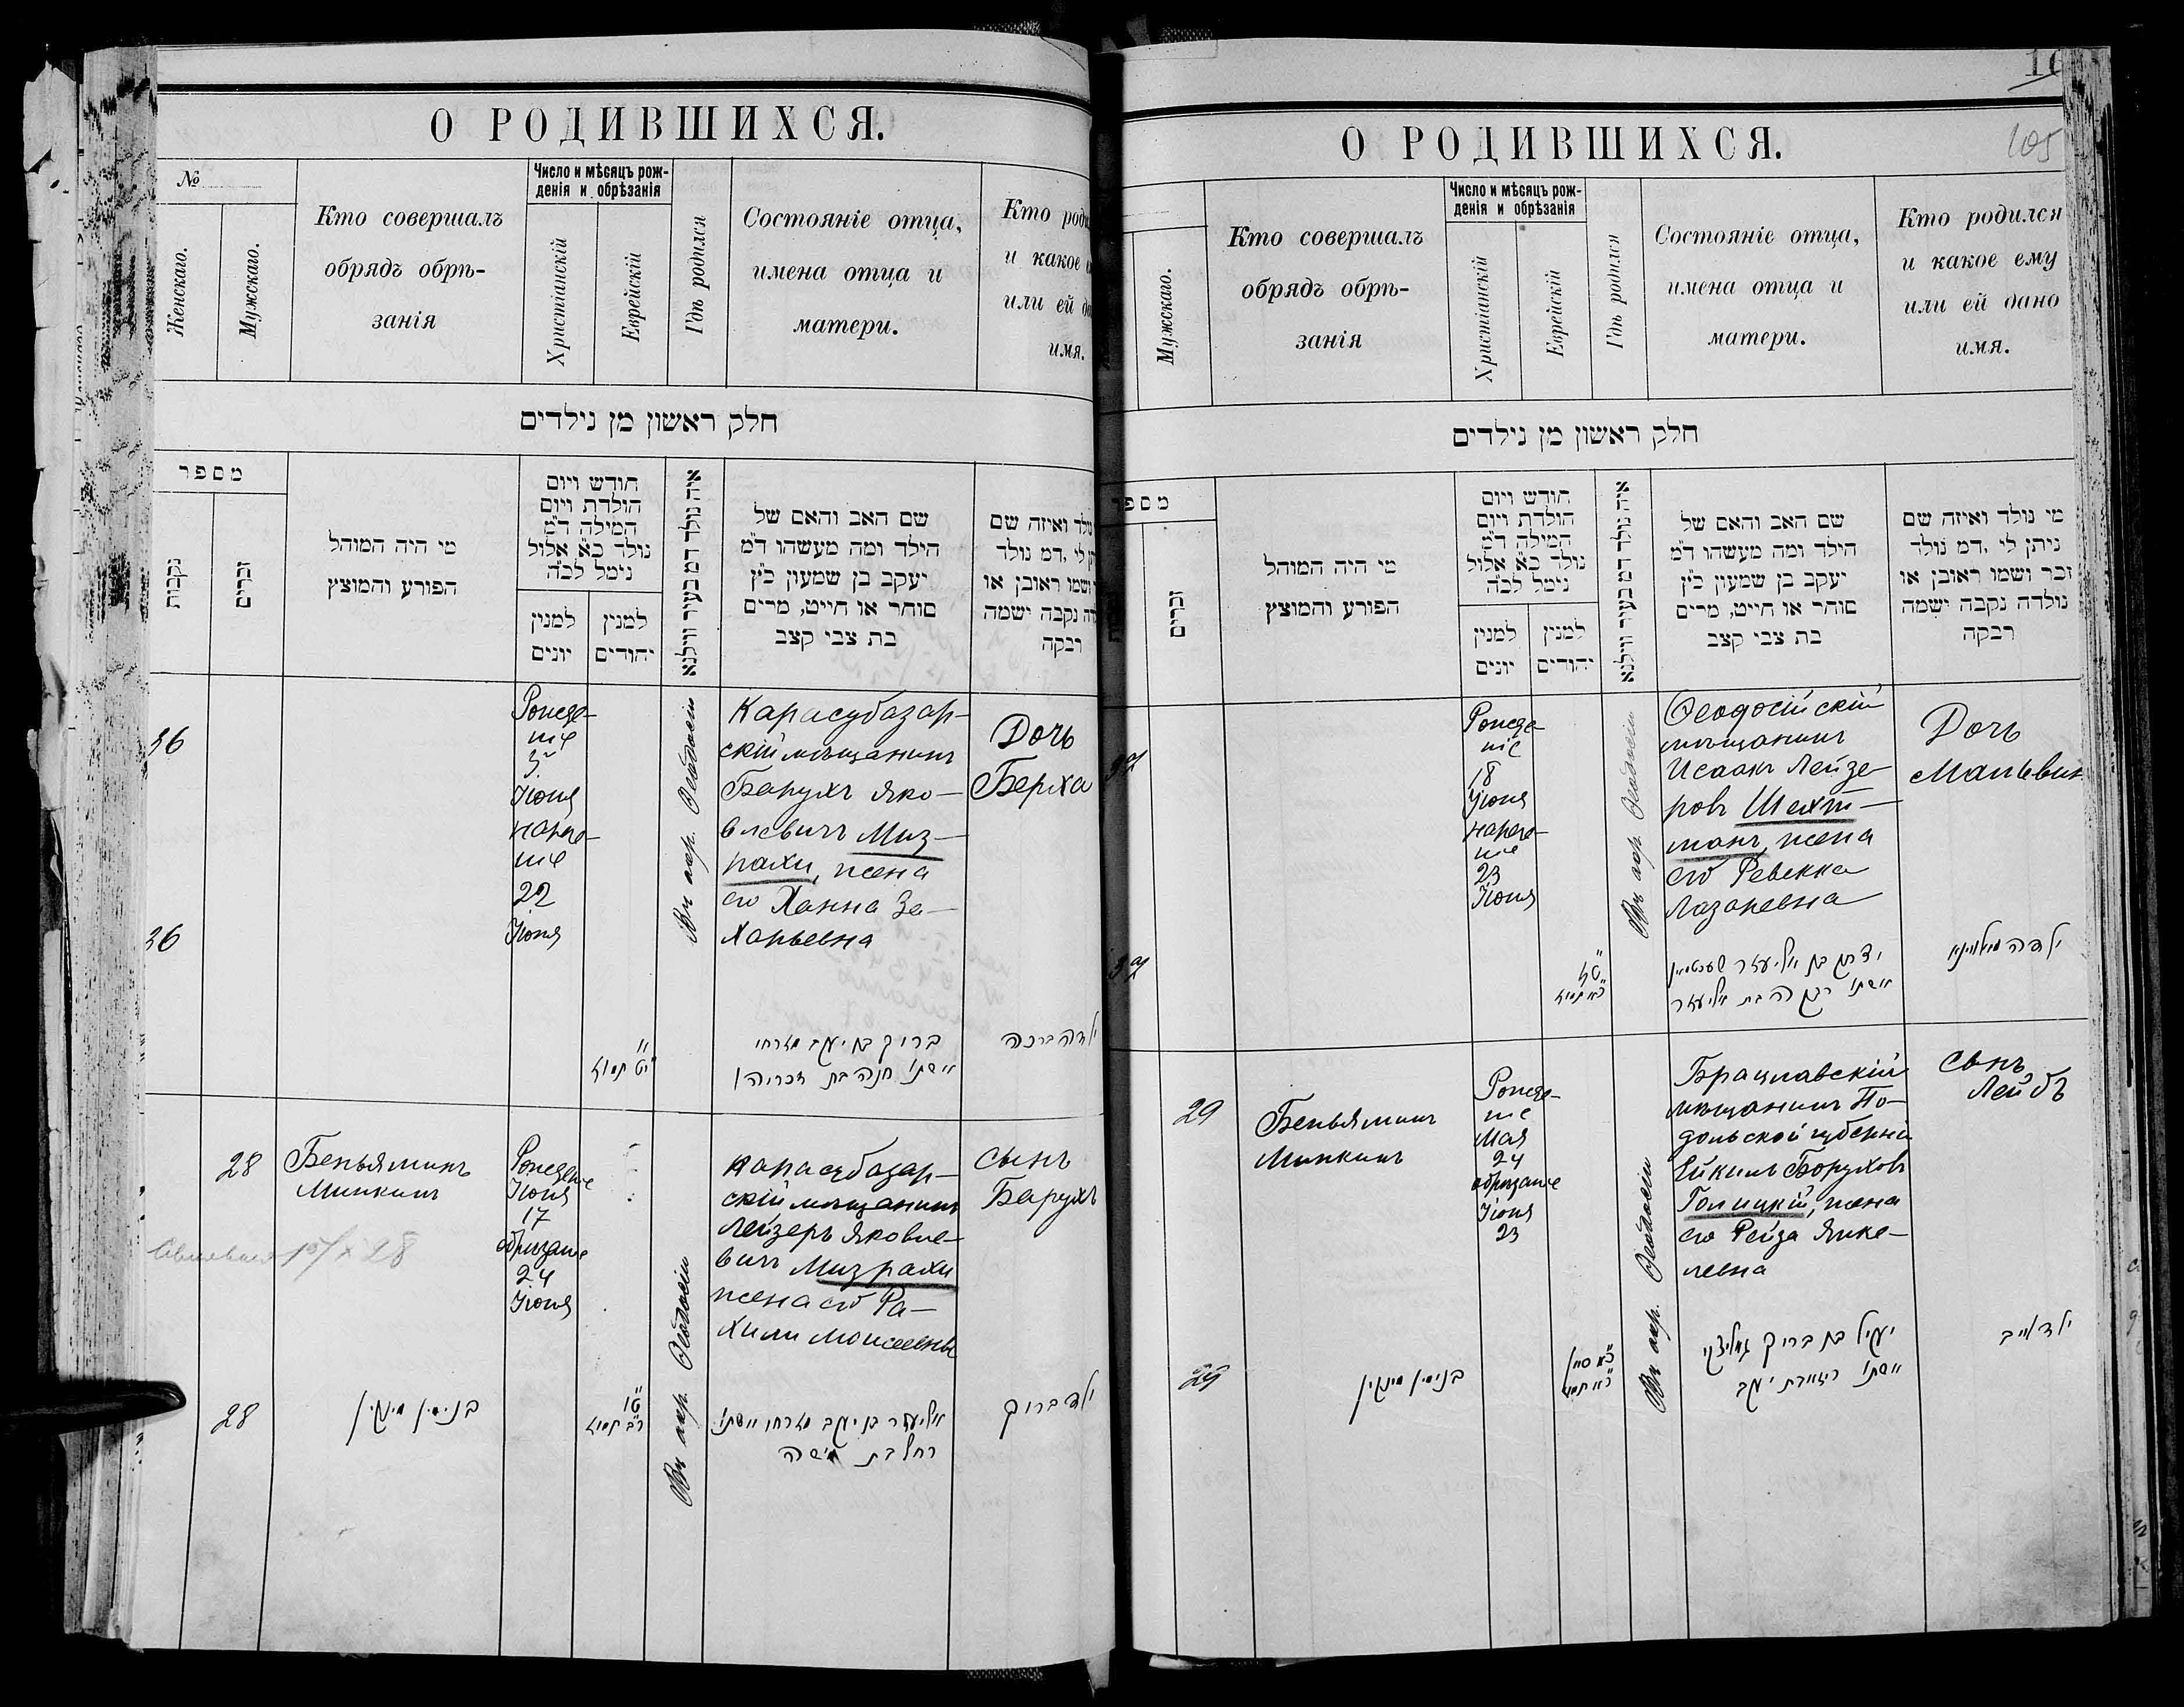 О РОДИВШИХСЯ.
№
Женскаго.
Мужскаго.
Кто совершалъ
обрядъ обрѣ-
занія
Число и мѣсяцъ рож-
денія и обрѣзанія
Христіанскій
Еврейскій
Гдѣ родился
Состояніе отца,
имена отца и
матери.
Кто роди
и какое
или ей
имя.
חלק ראשון מן נילדים
מספר
נקבות
זכרים
מי היה המוהל
הפורע והמוצץ
חודש ויום
הולדת ויום
המילה ד״מ
נולד כ״א אלול
נימל לכ״ה
למנין
יונים
למנין
יהודים
איה נולד דמ בעיר ווילנא
שם האב והאם של
הילד ומה מעשהו ד״מ
יעקב בן שמעון כ״ץ
סוחר או חייט, מרים
בת צבי קצב
נולד ואיזה שם
לי .דמ נולד
ושמו ראובן או
נקבה ישמה
רבקה
36
Рожде-
ніе
3
Іюня
нарече-
ніе
22
Іюня
Въ гор. Ѳеодосіи
Карасубазар-
скій мѣщанинъ
Барухъ Яко-
влевичъ Миз-
рахи, жена
его Ханна За-
харьевна
Дочь
Берха
36
י״ט תמוז
ברוך בן יעקב מזרחי
אשתו חנה בת זכריה
ילדה ברכה
28
Беньяминъ
Минкинъ
Рожденіе
Іюня
17
обрѣзаніе
24
Іюня
Въ гор. Ѳеодосіи
Карасубазар-
скій мѣщанинъ
Лейзеръ Яковле-
вичъ Мизрахи
жена его Ра-
хили Моисеевны
Сынъ
Барухъ
28
28
בנימין מינקין
ט״ו
כ״ב תמוז
אליעזר בן יעקב מזרחי אשתו
רחל בת משה
ילד ברוך
О РОДИВШИХСЯ.
105
Мужскаго.
Кто совершалъ
обрядъ обрѣ-
занія
Число и мѣсяцъ рож-
денія и обрѣзанія
Христіанскій
Еврейскій
Гдѣ родился
Состояніе отца,
имена отца и
матери.
Кто родился
и какое ему
или ей дано
имя.
חלק ראשון מן נילדים
זכרים
מי היה המוהל
הפורע והמוצץ
חודש ויום
הולדת ויום
המילה ד״מ
נולד כ״א אלול
נימל לכ״ה
למנין
יונים
למנין
יהודים
איה נולד דמ בעיר ווילנא
שם האב והאם של
הילד ומה מעשהו ד״מ
יעקב בן שמעון כ״ץ
סוחר או חייט, מרים
בת צבי קצב
מי נולד ואיזה שם
ניתן לי .דמ נולד
זכר ושמו ראובן או
נולדה נקבה ישמה
רבקה
37
Рожде-
ніе
18
Іюня
нарече-
ніе
23
Іюня
Въ гор. Ѳеодосіи
Ѳеодосійскій
мѣщанинъ
Исаакъ Лейзе-
ровъ Шехт-
манъ, жена
его Ревекка
Лазаревна
Дочь
Мальвин
37
ט״ז
כ״א תמוז
יצחק בן אליעזר שעכטמאן
אשתו רבקה בת אליעזר
ילדה מאלווינא
29
Беньяминъ
Минкинъ
Рожде-
ніе
Мая
24
обрѣзаніе
Іюня
23
Въ гор. Ѳеодосіи
Брацлавскій
мѣщанинъ По-
дольской губерніи
Борухов
Голицкій, жена
его Рейза Янке-
левна
Сынъ
Лейбъ
29
בנימין מינקין
כ״א סיון
כ״א תמוז
בן ברוך גאליצקי
אשתו רייזא בת יעקב
ילד לייב